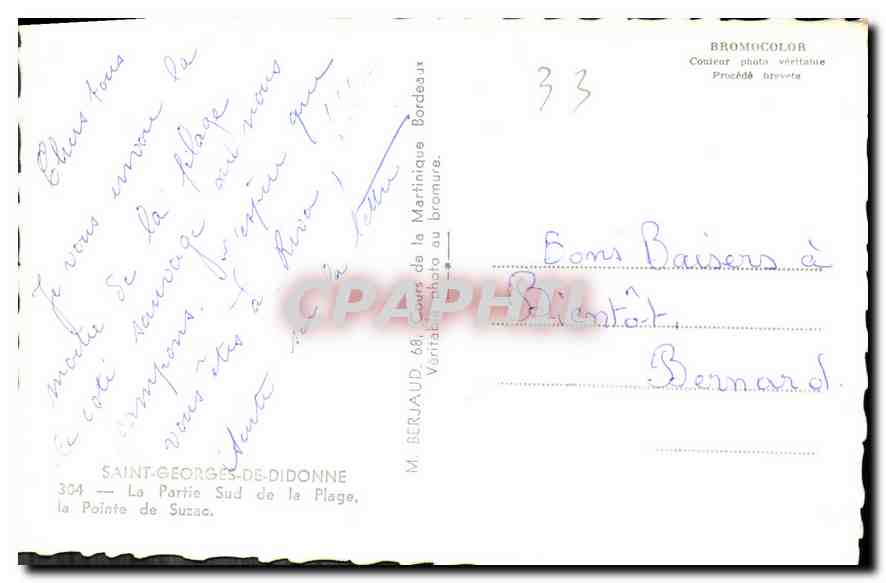 Chers tous
Je vous envoie la
moitié de la plage
le côté sauvage où nous
campons. J'espère que
vous êtes à Riva! !!!
suite sur la lettre
SAINT-GEORGES-DE-DIDONNE
304 — La Partie Sud de la Plage,
la Pointe de Suzac.
M. BERJAUD, 68, Cours de la Martinique Bordeaux
Véritable photo au bromure.
BROMOCOLOR
Couleur photo véritable
Procédé breveté
33
Bons Baisers à
Bientôt,
Bernard.
CPAPHIL